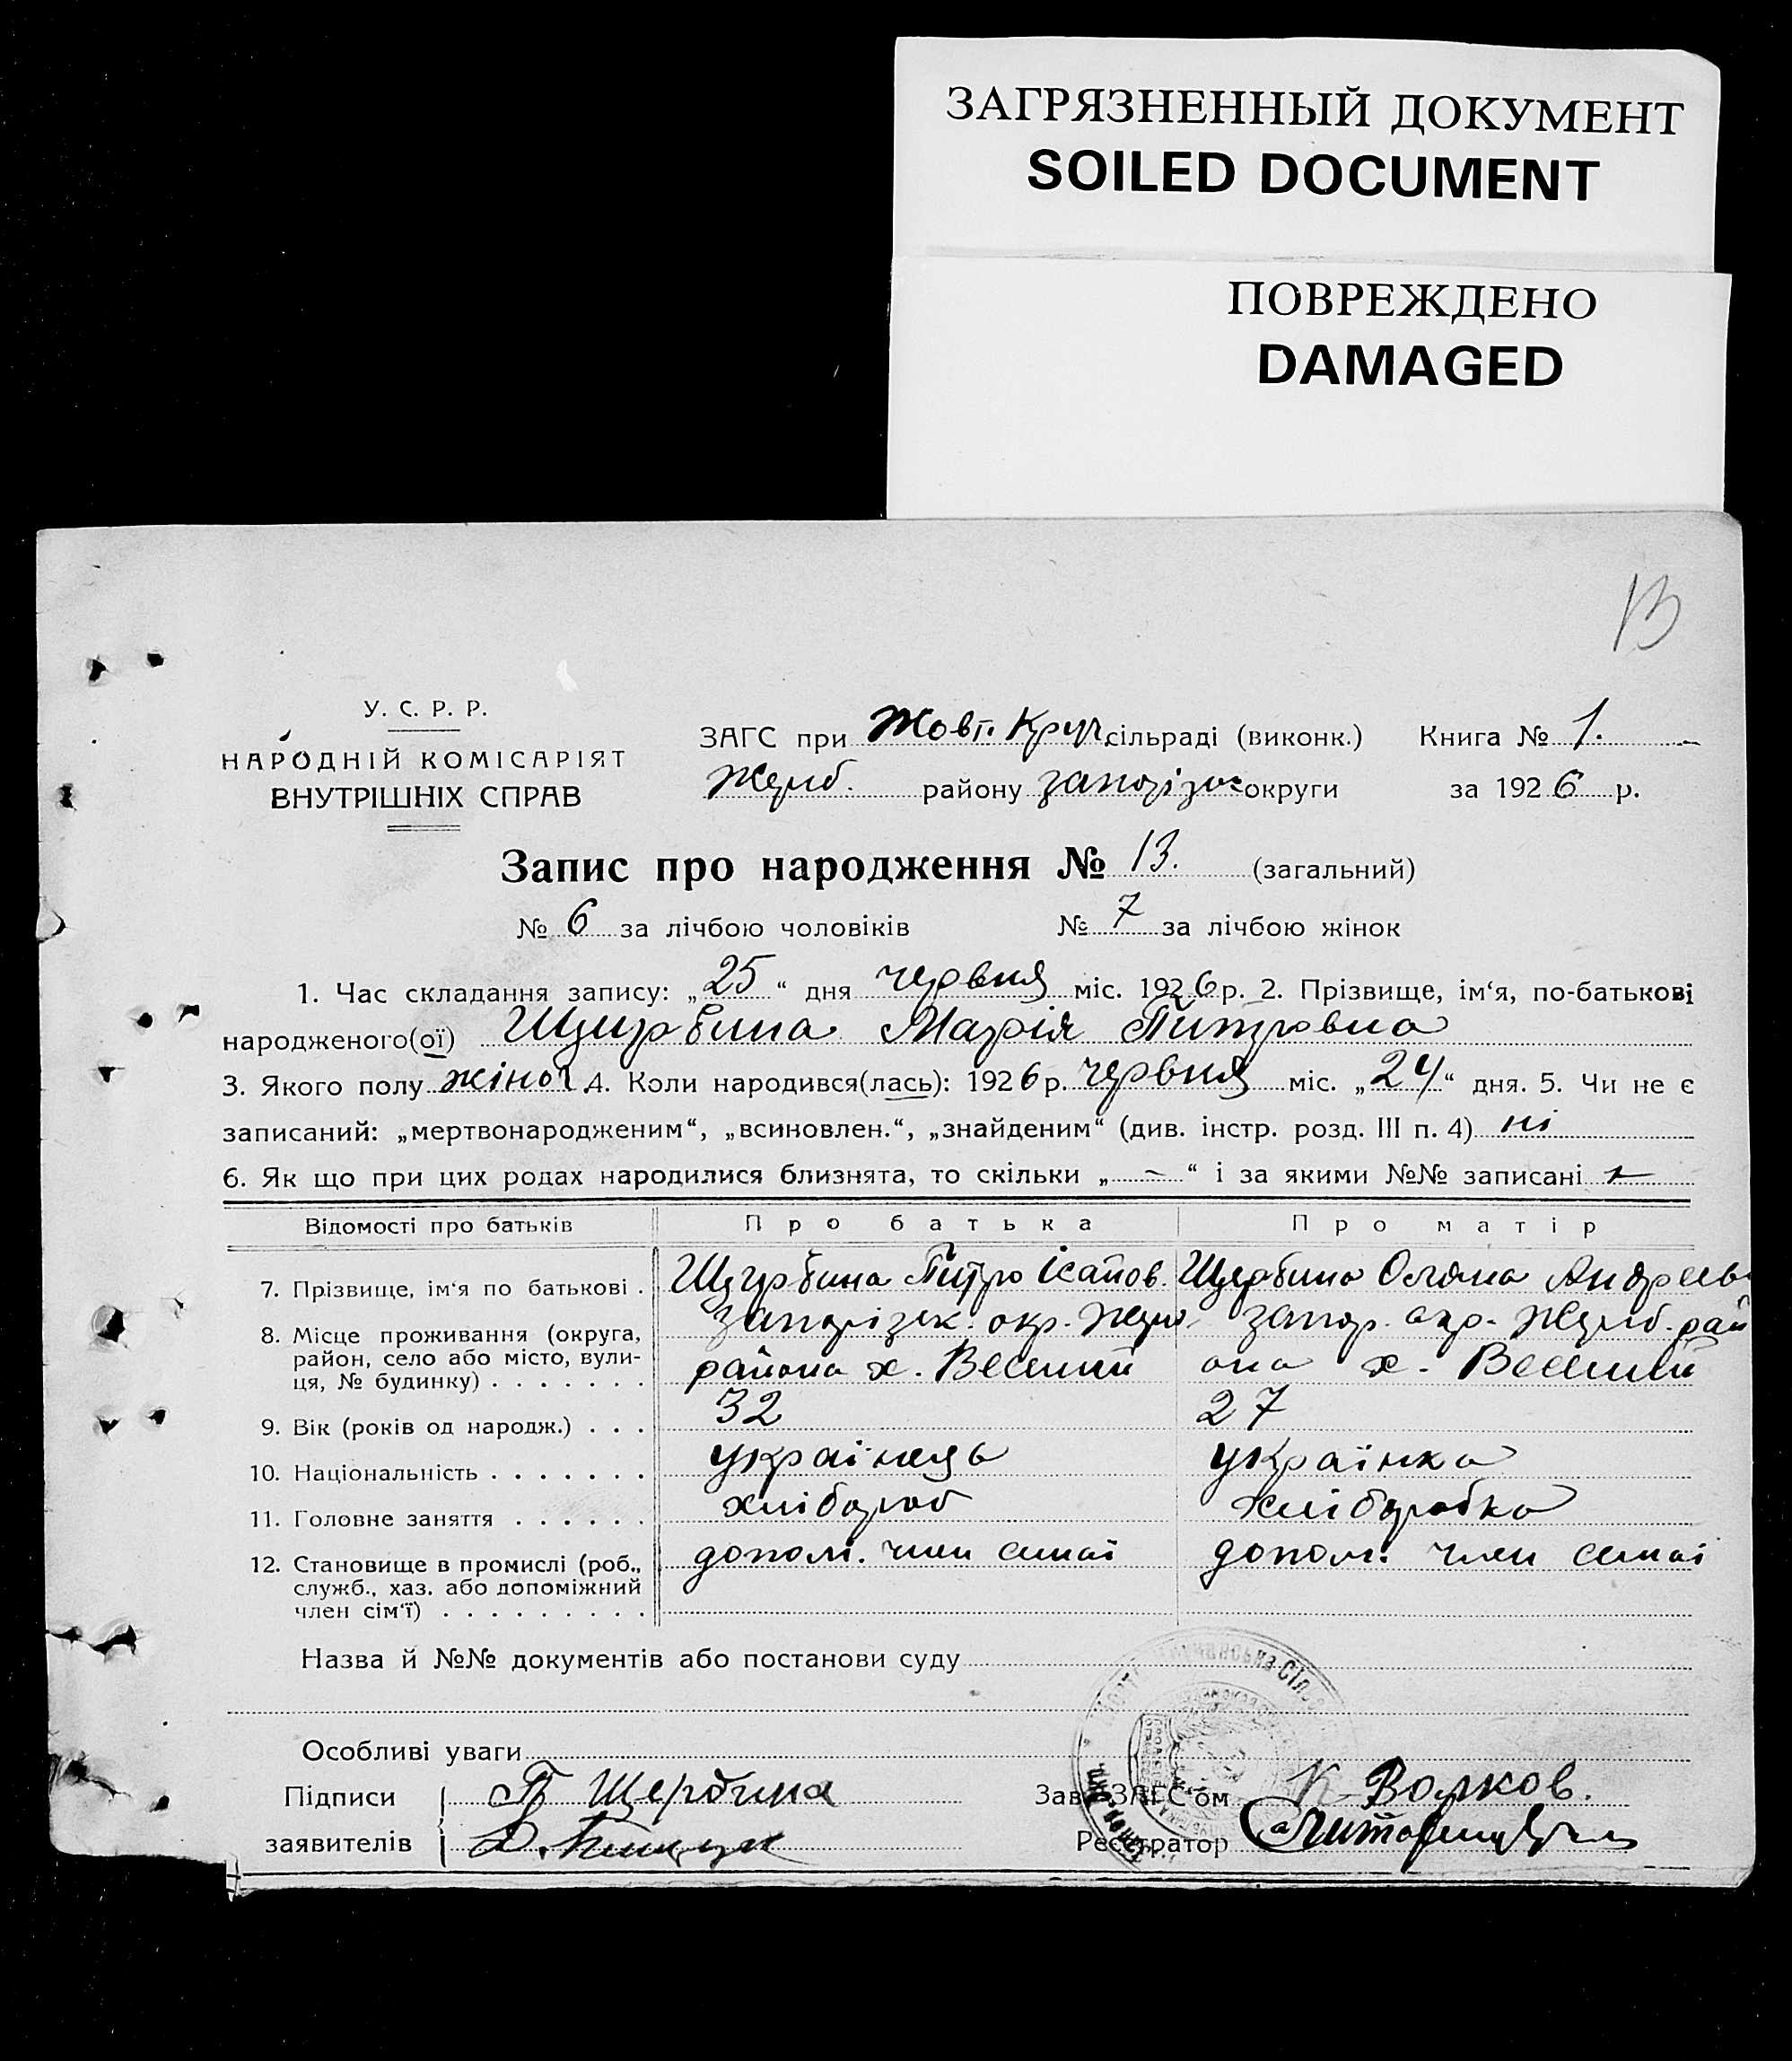 ЗАГРЯЗНЕННЫЙ ДОКУМЕНТ
SOILED DOCUMENT
ПОВРЕЖДЕНО
DAMAGED
13
У. С. Р. Р.
НАРОДНІЙ КОМІСАРІЯТ
ВНУТРІШНІХ СПРАВ
ЗАГС при Жовт. Круч. сільраді (виконк.) Книга № 1.
Жереб. району запорізьк округи за 1926 р.
Запис про народження № 13. (загальний)
№ 6 за лічбою чоловіків № 7 за лічбою жінок
1. Час складання запису: „25“ дня червня міс. 1926 р. 2. Прізвище, ім‘я, по-батькові
народженого(ої) Щербина Марія Петровна
3. Якого полу жіноч. 4. Коли народився(лась): 1926 р. червня міс. „24“ дня. 5. Чи не є
записаний: „мертвонародженим“, „всиновлен.“, „знайденим“ (див. інстр. розд. III п. 4) ні
6. Як що при цих родах народилися близнята, то скільки „ – “ і за якими №№ записані –
Відомості про батьків Про батька Про матір
7. Прізвище, ім‘я по батькові . Щербина Петро Щербина Андреев
8. Місце проживання (округа, запорізьк. окр. Жереб запор. окр. Жереб. рай
район, село або місто, вули- района х. Веселий она х. Веселий
ця, № будинку) . . . . . . .
9. Вік (років од народж.) . . . 32 27
10. Національність . . . . . . . українець українка
11. Головне заняття . . . . . . хлібороб хліборобка
12. Становище в промислі (роб., допом. член семьї допом. член семьї
служб., хаз. або допоміжний
член сім‘ї) . . . . . . . . .
Назва й №№ документів або постанови суду
Особливі уваги
Підписи П Щербина Зав. ЗАГС‘ом К Волков.
заявителів Реєстратор